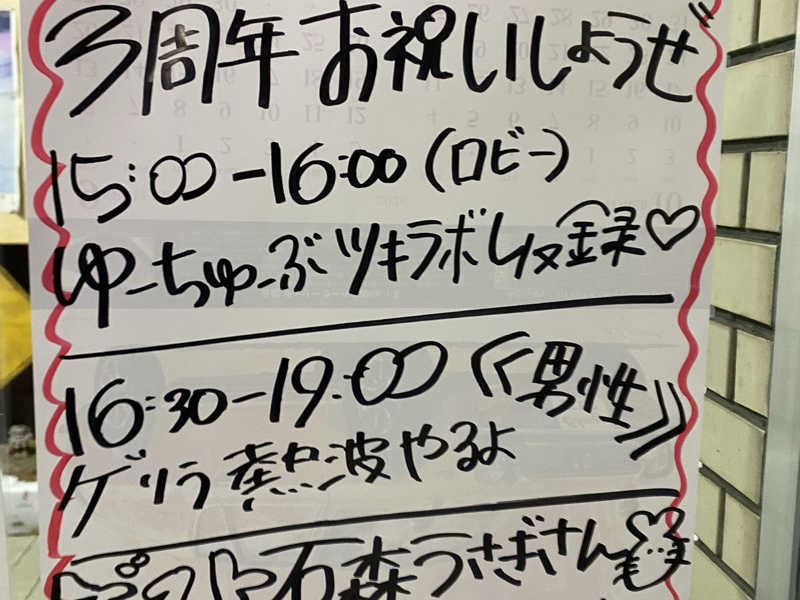 3周年お祝いしようぜ
15:00-16:00(ロビー)
ゆーちゅーぶツキラボ収録♡
16:30-19:00《男性》
ゲリラ熱波やるよ
石森うさぎさん